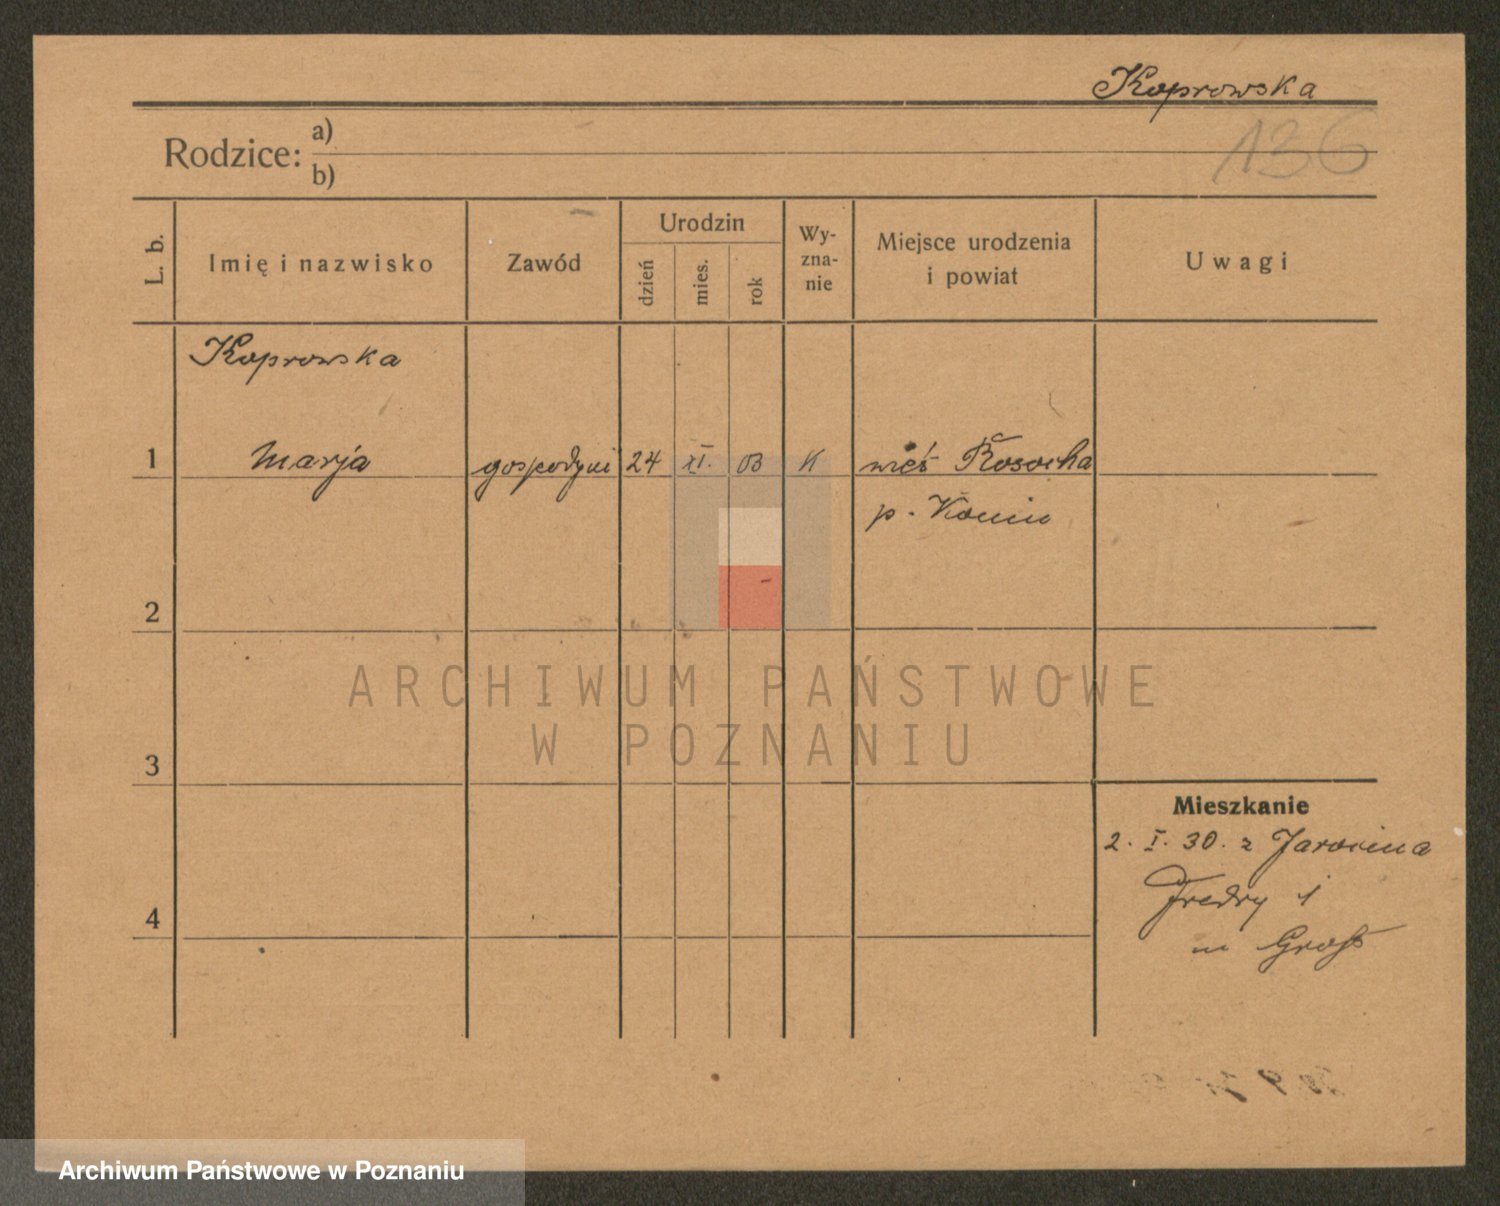 Koprowska
136
Rodzice: a)
b)
L. b.
Imię i nazwisko
Zawód
Urodzin
dzień
mies.
rok
Wy-
zna-
nie
Miejsce urodzenia
i powiat
Uwagi
Koprowska
1 Marja gospodyni 24 XI. 03 K wieś Rosocha
p. Konin
2
3
4
Mieszkanie
2. I. 30. z Jarocina
Fredry 1
ARCHIWUM PAŃSTWOWE
W POZNANIU
Archiwum Państwowe w Poznaniu